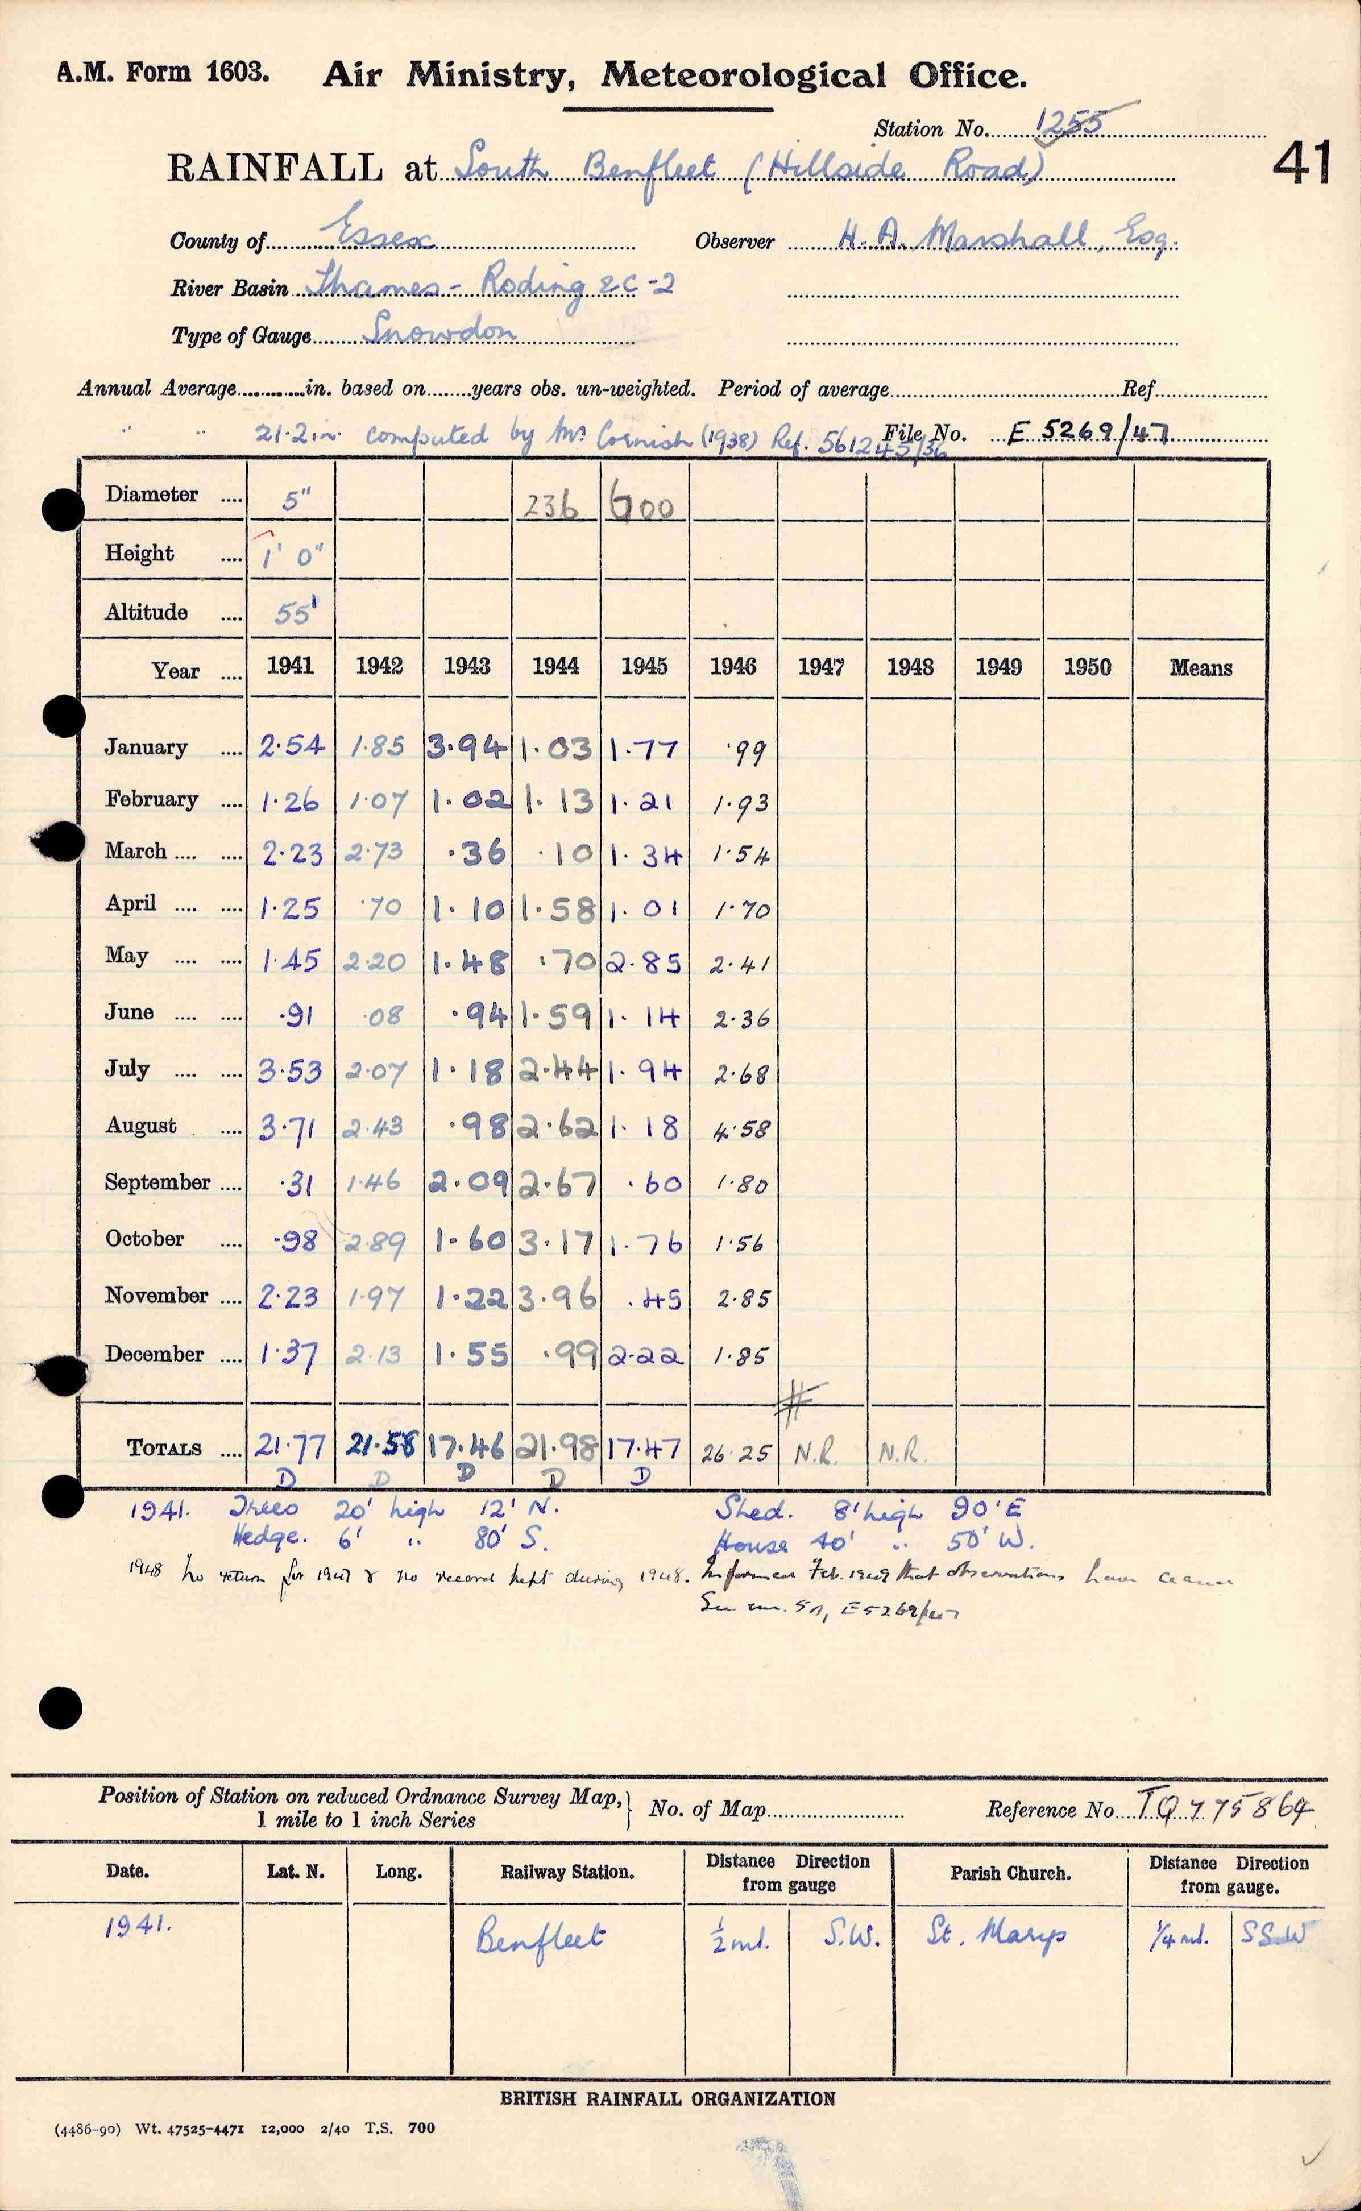 A.M. Form 1603. Air Ministry, Meteorological Office.
Station No. 1255
RAINFALL at South Benfleet (Hillside Road) 41
County of Essex Observer H. A. Marshall, Esq.
River Basin Thames - Roding &C -2
Type of Gauge Snowdon
Annual Average in. based on years obs. un-weighted. Period of average Ref.
" " 21.2 in. computed by Mr Cornish (1938) Ref. 561245/36 File No. E 5269/47
Diameter 5" 236 600
Height 1' 0"
Altitude 55'
Year 1941 1942 1943 1944 1945 1946 1947 1948 1949 1950 Means
January 2.54 1.85 3.94 1.03 1.77 .99
February 1.26 1.07 1.02 1.13 1.21 1.93
March 2.23 2.73 .36 .10 1.34 1.54
April 1.25 .70 1.10 1.58 1.01 1.70
May 1.45 2.20 1.48 .70 2.85 2.41
June .91 .08 .94 1.59 1.14 2.36
July 3.53 2.07 1.18 2.44 1.94 2.68
August 3.71 2.43 .98 2.62 1.18 4.58
September .31 1.46 2.09 2.67 .60 1.80
October .98 2.89 1.60 3.17 1.76 1.56
November 2.23 1.97 1.22 3.96 .45 2.85
December 1.37 2.13 1.55 .99 2.22 1.85
#
TOTALS 21.77 21.58 17.46 21.98 17.47 26.25 N.R. N.R.
D D D D D
1941. Trees 20' high 12' N. Shed. 8' high 90' E
Hedge. 6' " 80' S. House 40' " 50' W.
1948 No return for 1947 & no record kept during 1948. Informed Feb. 1949 that observations have ceased
See E5269/47
Position of Station on reduced Ordnance Survey Map, 1 mile to 1 inch Series No. of Map Reference No. TQ 775864
Date. Lat. N. Long. Railway Station. Distance Direction from gauge Parish Church. Distance Direction from gauge.
1941. Benfleet ½ ml. S.W. St. Marys ¼ ml. SSW
BRITISH RAINFALL ORGANIZATION
(4486-90) Wt. 47525-4471 12,000 2/40 T.S. 700